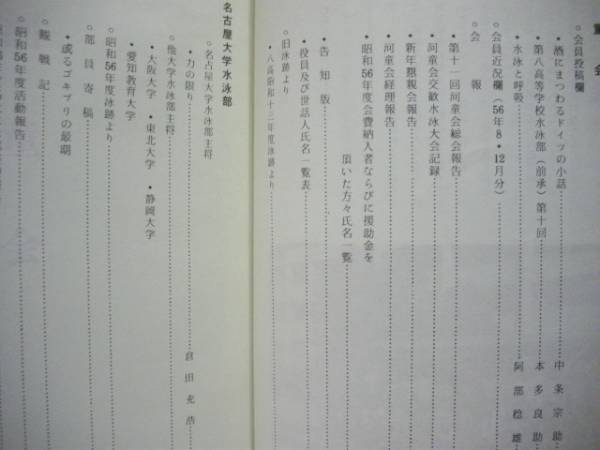 会
○会員投稿欄
・酒にまつわるドイツの小話……中条宗助
・第八高等学校水泳部（前承）第十回……本多良助
・水泳と呼吸……阿部稔雄
○会員近況欄（56年8・12月分）
○会報
・第十一回河童会総会報告
・河童会交歓水泳大会記録
・新年懇親会報告
・河童会経理報告
・昭和56年度会費納入者ならびに援助金を
頂いた方々氏名一覧
・告知版
・役員及び世話人氏名一覧表
○旧泳跡より
・八高昭和十三年度泳跡より
名古屋大学水泳部
○名古屋大学水泳部主将
・力の限り……倉田充浩
○他大学水泳部主将
・大阪大学 ・東北大学 ・静岡大学
・愛知教育大学
○昭和56年度泳跡より
○部員寄稿
・或るゴキブリの最期
○観戦記
○昭和56年度活動報告